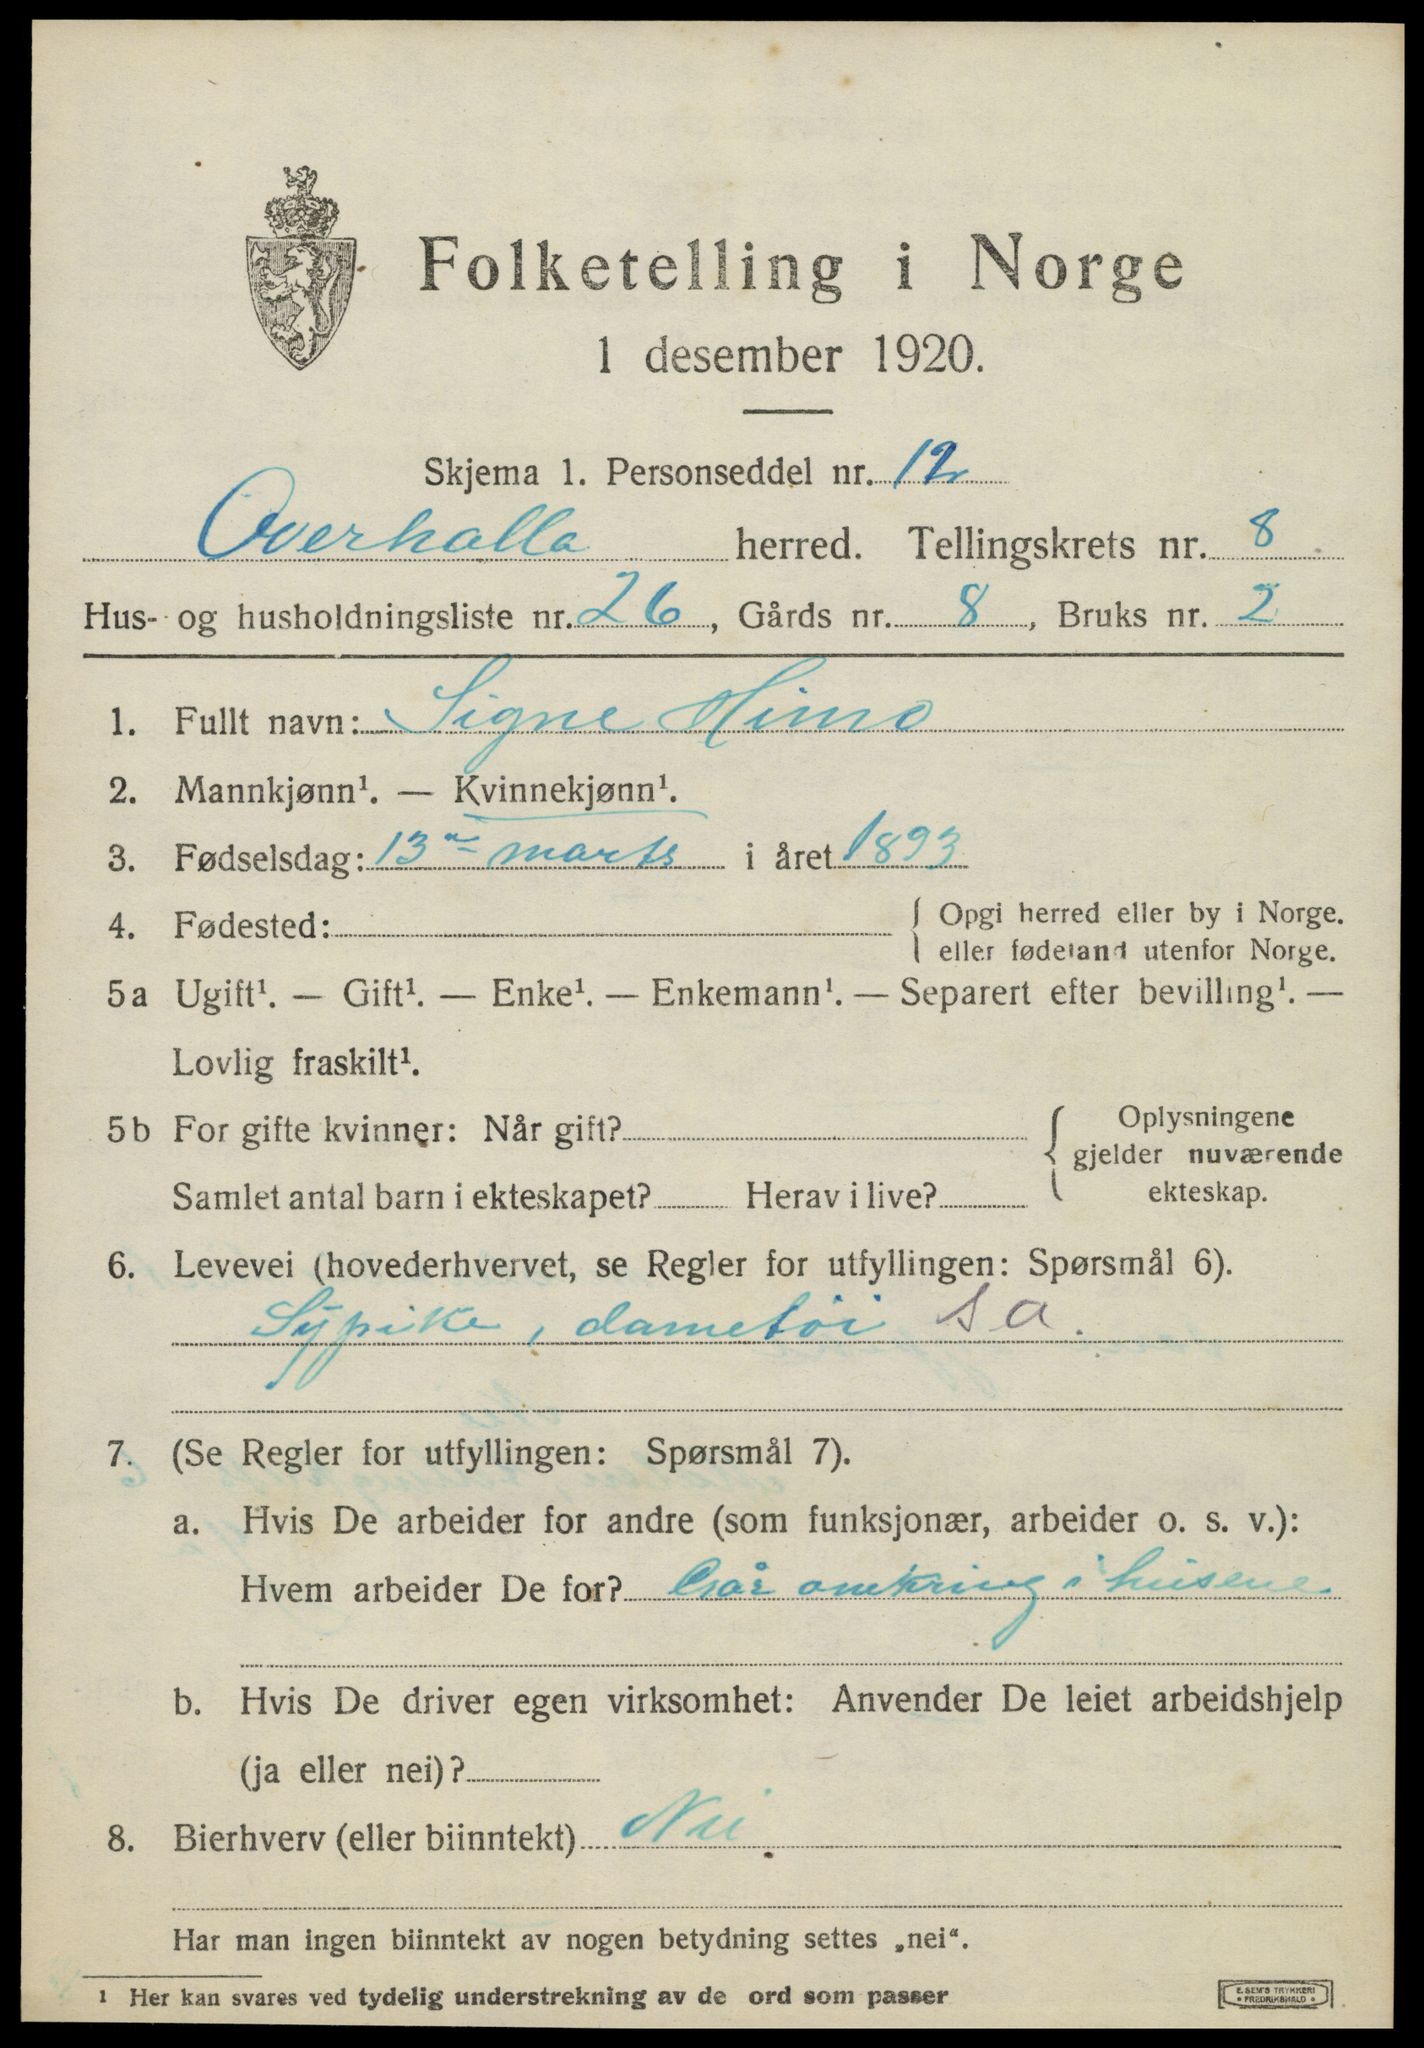 Folketelling i Norge
1 desember 1920.
Skjema 1. Personseddel nr. 12
Overhalla herred. Tellingskrets nr. 8
Hus- og husholdningsliste nr. 26, Gårds nr. 8, Bruks nr. 2
1. Fullt navn: Signe Himo
2. Mannkjønn¹. — Kvinnekjønn¹.
3. Fødselsdag: 13de marts i året 1893
4. Fødested: { Opgi herred eller by i Norge.
eller fødeland utenfor Norge.
5a Ugift¹. — Gift¹. — Enke¹. — Enkemann¹. — Separert efter bevilling¹. —
Lovlig fraskilt¹.
5b For gifte kvinner: Når gift? { Oplysningene
gjelder nuværende
Samlet antal barn i ekteskapet? Herav i live? ekteskap.
6. Levevei (hovederhvervet, se Regler for utfyllingen: Spørsmål 6).
Sypike, dametöi s a.
7. (Se Regler for utfyllingen: Spørsmål 7).
a. Hvis De arbeider for andre (som funksjonær, arbeider o. s. v.):
Hvem arbeider De for? Går omkring i husene
b. Hvis De driver egen virksomhet: Anvender De leiet arbeidshjelp
(ja eller nei)?
8. Bierhverv (eller biinntekt) Nei
Har man ingen biinntekt av nogen betydning settes „nei“.
1 Her kan svares ved tydelig understrekning av de ord som passer
E. SEM'S TRYKKERI
• FREDRIKSHALD •